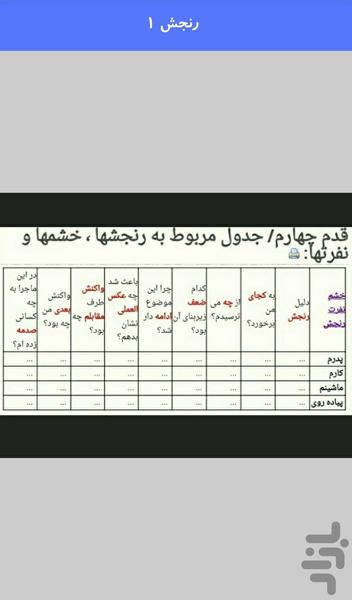 رنجش ۱
قدم چهارم/ جدول مربوط به رنجشها ، خشمها و
نفرتها:
خشم
نفرت
رنجش
دلیل
رنجش
به کجای
من
برخورد؟
از چه می
ترسیدم؟
کدام
ضعف
زیربنای آن
بود؟
چرا این
موضوع
ادامه دار
شد؟
باعث شد
چه عکس
العملی
نشان
بدهم؟
واکنش
طرف
مقابلم چه
بود؟
واکنش
بعدی من
چه بود؟
در این
ماجرا به
چه
کسانی
صدمه
زده ام؟
پدرم ... ... ... ... ... ... ... ... ...
کارم ... ... ... ... ... ... ... ... ...
ماشینم ... ... ... ... ... ... ... ... ...
پیاده روی ... ... ... ... ... ... ... ... ...
بازار